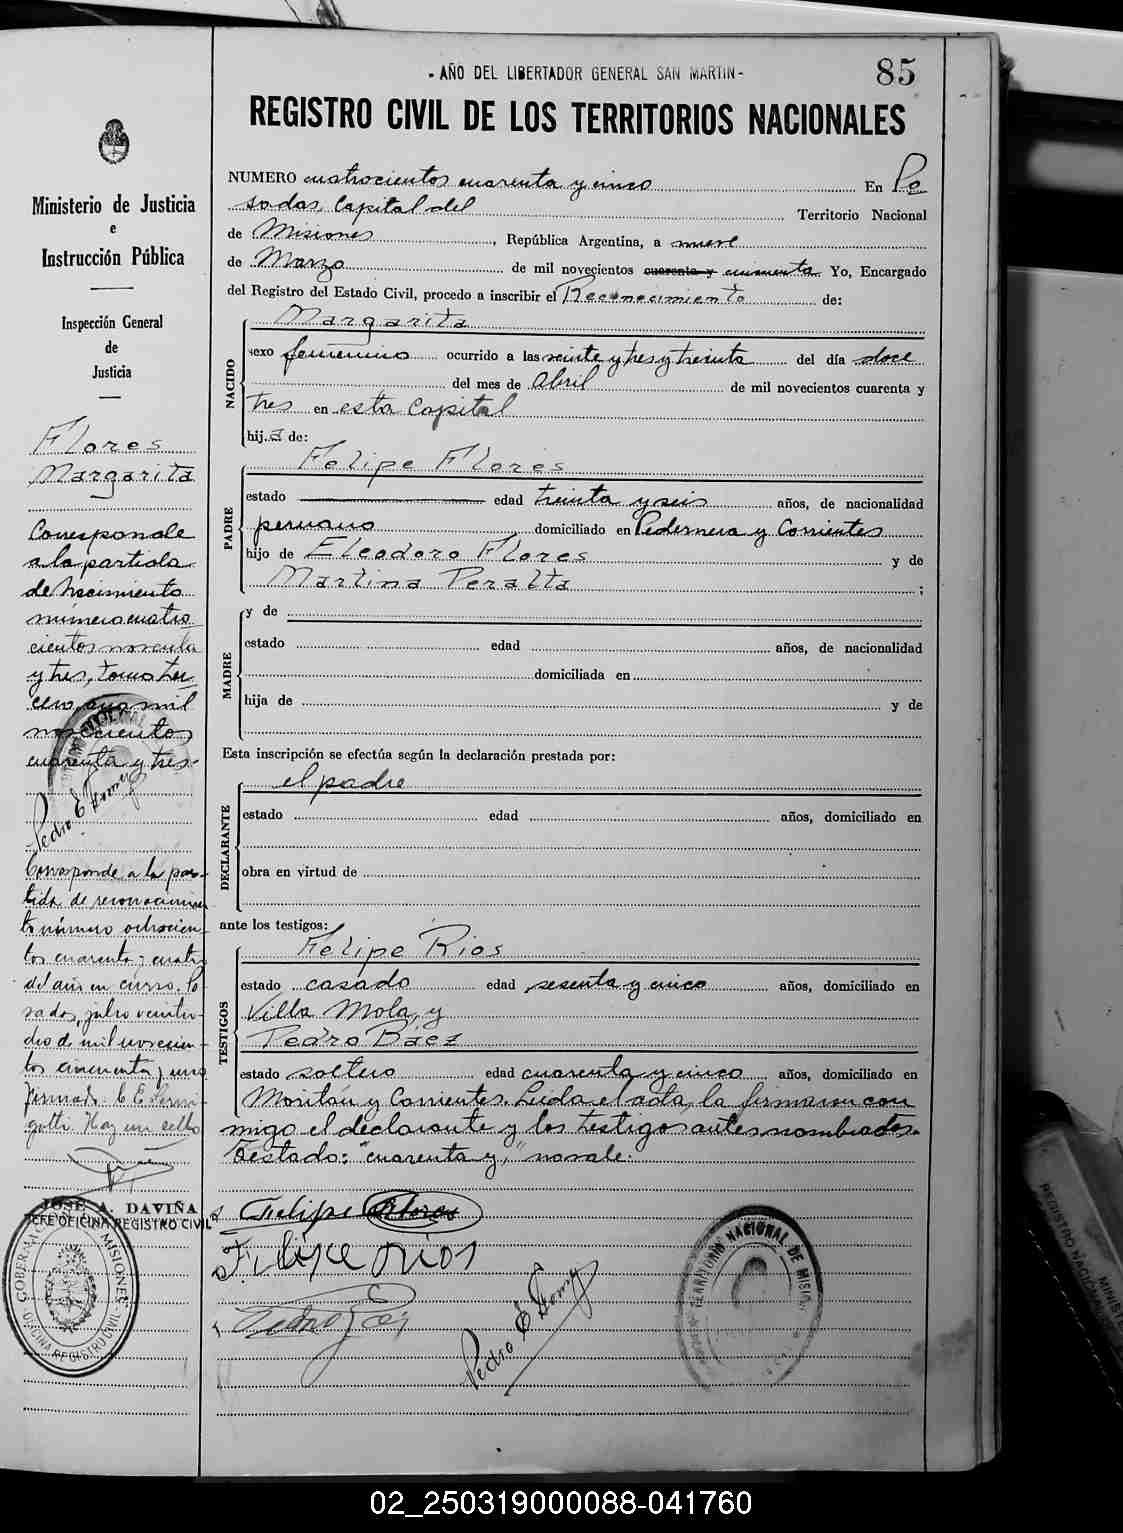 - AÑO DEL LIBERTADOR GENERAL SAN MARTIN -
85
REGISTRO CIVIL DE LOS TERRITORIOS NACIONALES
Ministerio de Justicia
e
Instrucción Pública
Inspección General
de
Justicia
Flores
Margarita
Corresponde
a la partida
de nacimiento
número cuatro
cientos noventa
y tres, tomo ter
cero, año mil
novecientos
cuarenta y tres.
Pedro E
Corresponde a la par-
tida de reconocimien
to número ochocien-
tos cuarenta y cuatro
del año en curso. Po
sadas, julio veintio-
dos de mil novecien-
tos cincuenta y uno
firmado: C. E.
Hay un sello
JOSE A. DAVIÑA
JEFE OFICINA REGISTRO CIVIL
GOBERNACION DE MISIONES
OFICINA REGISTRO CIVIL
NUMERO cuatrocientos cuarenta y cinco En Po
sadas, Capital del Territorio Nacional
de Misiones, República Argentina, a nueve
de Marzo de mil novecientos cuarenta y cincuenta. Yo, Encargado
del Registro del Estado Civil, procedo a inscribir el Reconocimiento de:
Margarita
NACIDO
sexo femenino ocurrido a las veinte y tres y treinta del día doce
del mes de Abril de mil novecientos cuarenta y
tres en esta Capital
hija de:
Felipe Flores
PADRE
estado edad treinta y seis años, de nacionalidad
peruano domiciliado en Pedernera y Corrientes
hijo de Eleodoro Flores y de
Martina Peralta ;
MADRE
y de
estado edad años, de nacionalidad
domiciliada en
hija de y de
Esta inscripción se efectúa según la declaración prestada por:
el padre
DECLARANTE
estado edad años, domiciliado en
obra en virtud de
ante los testigos:
Felipe Rios
TESTIGOS
estado casado edad sesenta y cinco años, domiciliado en
Villa Mola, y
Pedro Báez
estado soltero edad cuarenta y cinco años, domiciliado en
Moritán y Corrientes. Leida el acta, la firmaron con
migo el declarante y los testigos antes nombrados.
Testado: "cuarenta y", no vale.
Felipe Flores
Felipe Rios
Pedro E
TERRITORIO NACIONAL DE MISIONES
REGISTRO NACIONAL
MINISTE
02_250319000088-041760